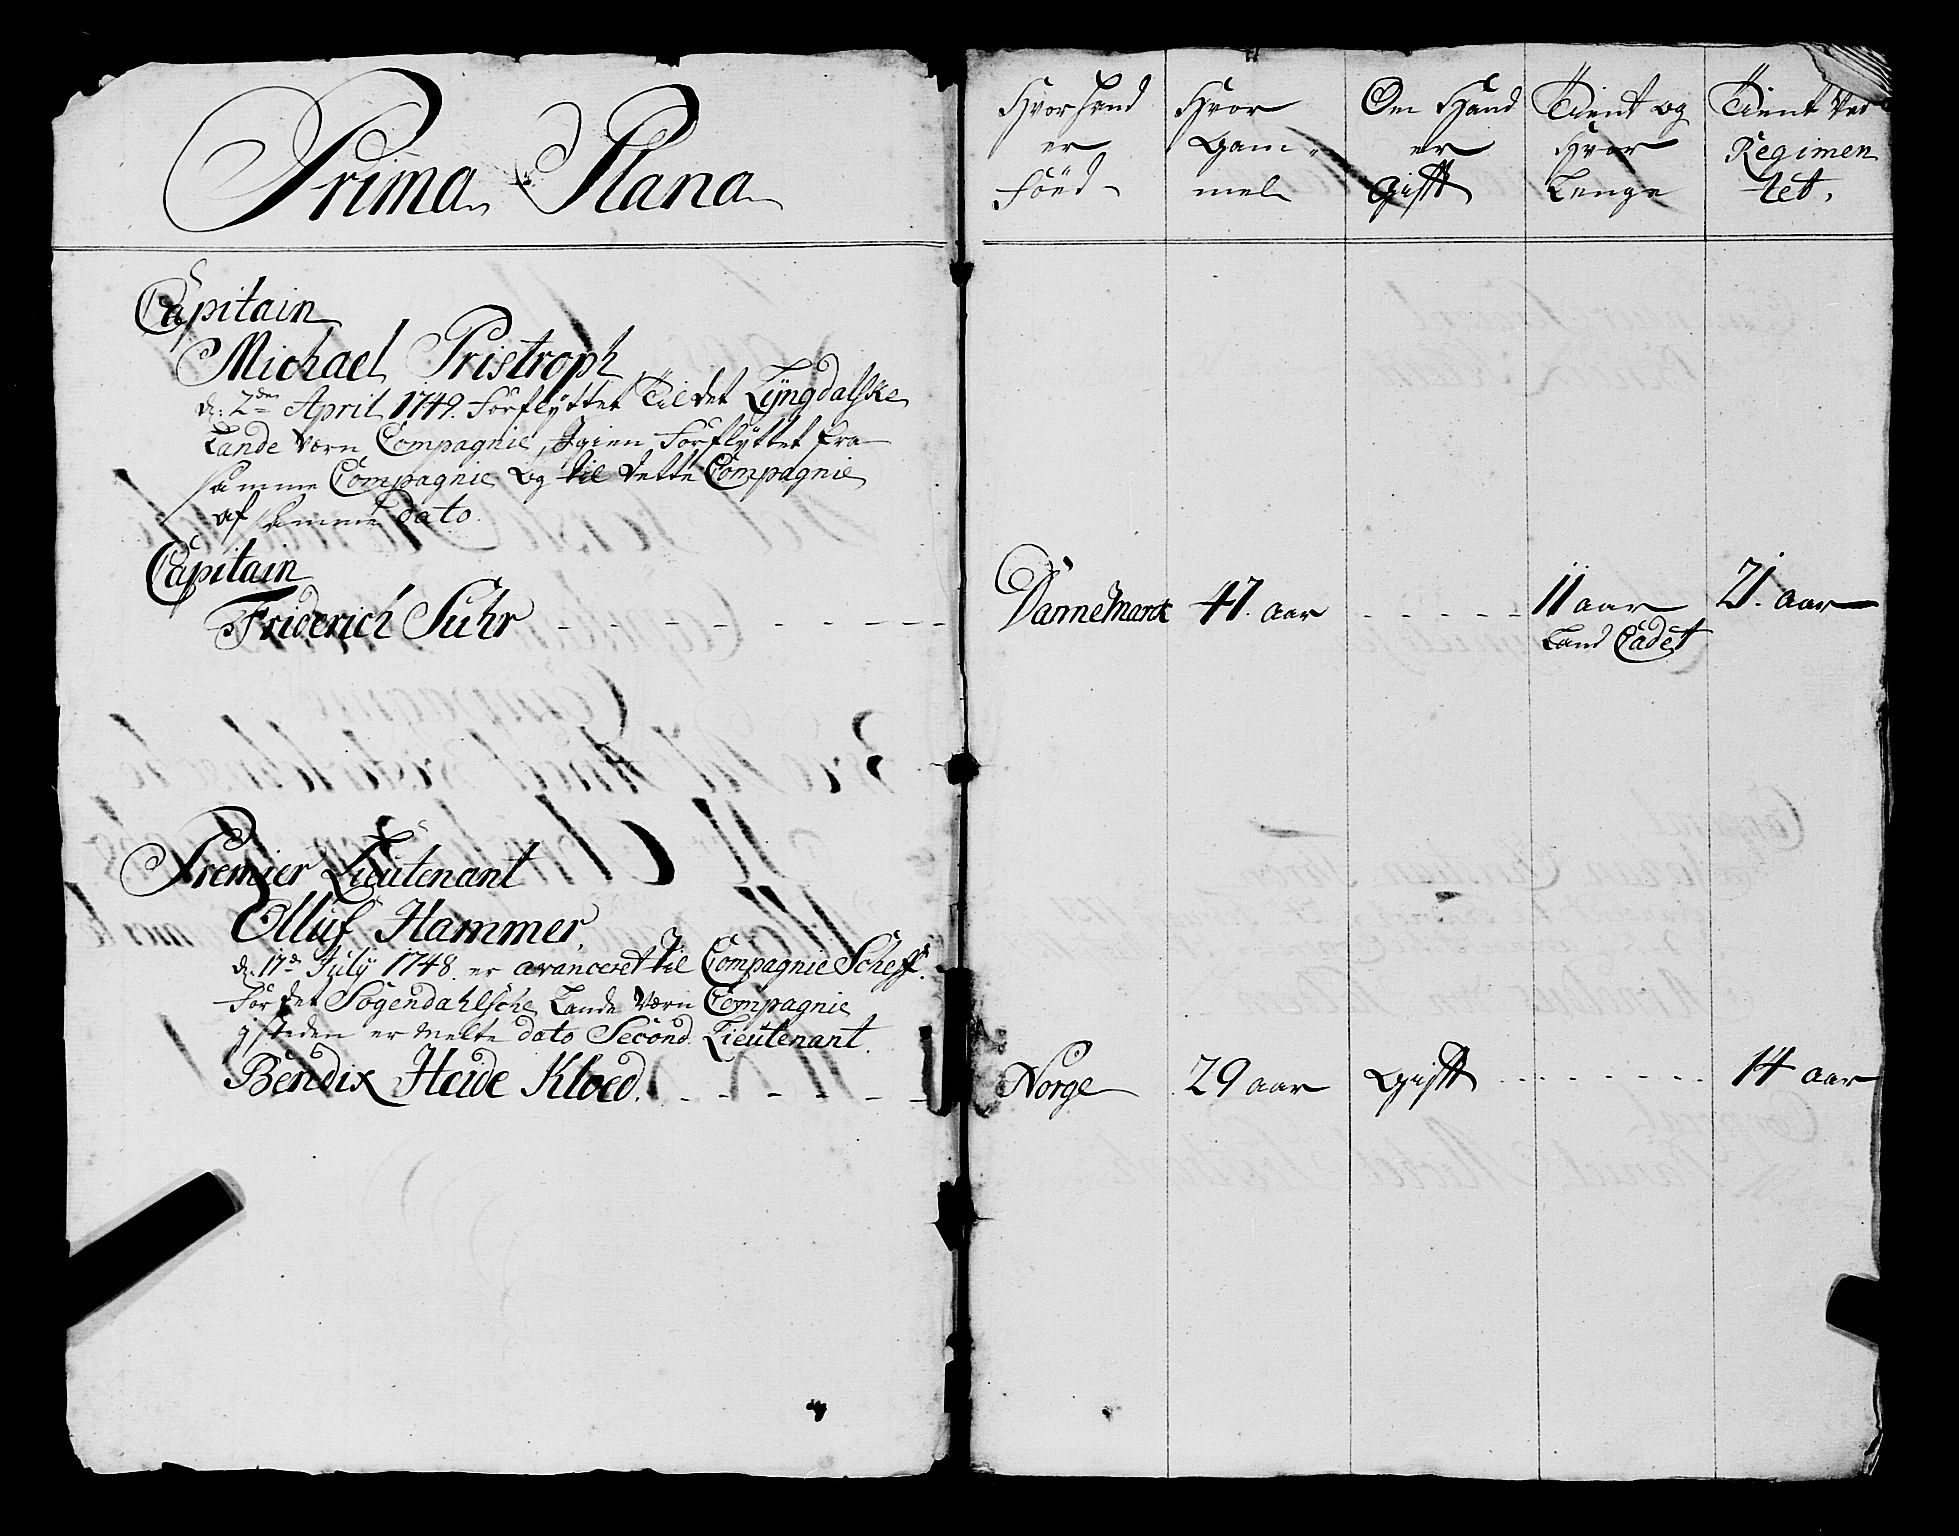 Prima Plana
Hvor hand er Föed
Hvor Gam mel
Om Hand er Gifft
Tient og Hvor Lenge
Tient Ved Regimen tet.
Capitain
Michael Pristroph
d: 2den April 1749. Forflyttet til det Lyngdalske
Lande Værn Compagnie, Igien Forflyttet fra
samme Compagnie og til dette Compagnie
af samme dato.
Capitain
Friderich Suhr - - - - - - - - Dannemarck 47. aar - - - - - 11 aar 21. aar
Land Cadet
Premier Lieutenant
Olluf Hammer,
d: 17de July 1748. er avanceret til Compagnie Scheff.
For det Sogendahlsche Lande Værn Compagnie
i steden er melte dato Second Lieutenant.
Bendix Heide Kloed. - - - - - - Norge 29 aar Gifft - - - - - - - 14 aar